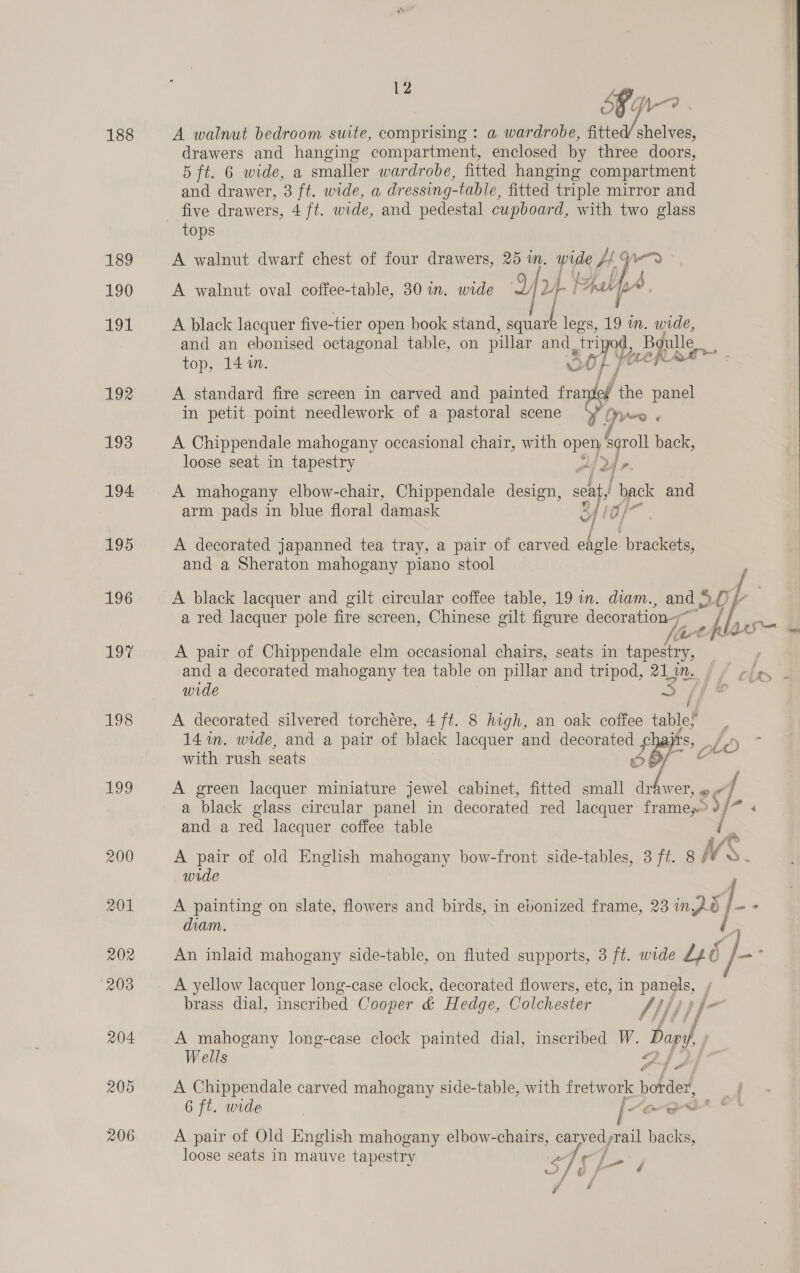 12
188 A walnut bedroom suite, comprising : a wardrobe, fitted shelves,
drawers and hanging compartment, enclosed by three doors,
5 ft. 6 wide, a smaller wardrobe, fitted hanging compartment
and drawer, 3 ft. wide, a dressing-table, fitted triple mirror and
five drawers, 4 ft. wide, and pedestal cupboard, with two glass
tops
189 A walnut dwarf chest of four drawers, 25 in. wide
190 A walnut oval coffee-table, 30 in. wide
191 A black lacquer five-tier open book stand, square legs, 19 in. wide,
and an ebonised octagonal table, on pillar and tripod, Boulle
top, 14 in.
192 A standard fire screen in carved and painted frame, the panel
in petit point needlework of a pastoral scene
193 A Chippendale mahogany occasional chair, with open scroll back,
loose seat in tapestry
194 A mahogany elbow-chair, Chippendale design, seat, back and
arm pads in blue floral damask
195 A decorated japanned tea tray, a pair of carved eagle brackets,
and a Sheraton mahogany piano stool
196 A black lacquer and gilt circular coffee table, 19 in. diam., and
a red lacquer pole fire screen, Chinese gilt figure decoration
197 A pair of Chippendale elm occasional chairs, seats in tapestry,
and a decorated mahogany tea table on pillar and tripod, 21 in.
wide
198 A decorated silvered torchère, 4 ft. 8 high, an oak coffee table,
14 in. wide, and a pair of black lacquer and decorated chairs,
with rush seats
199 A green lacquer miniature jewel cabinet, fitted small drawer,
a black glass circular panel in decorated red lacquer frame,
and a red lacquer coffee table
200 A pair of old English mahogany bow-front side-tables, 3 ft. 8
wide
201 A painting on slate, flowers and birds, in ebonized frame, 23 in.
diam.
202 An inlaid mahogany side-table, on fluted supports, 3 ft. wide
203 A yellow lacquer long-case clock, decorated flowers, etc, in panels,
brass dial, inscribed Cooper & Hedge, Colchester
204 A mahogany long-case clock painted dial, inscribed W. Dapy,
Wells
205 A Chippendale carved mahogany side-table, with fretwork border,
6 ft. wide
206 A pair of Old English mahogany elbow-chairs, carved rail backs,
loose seats in mauve tapestry